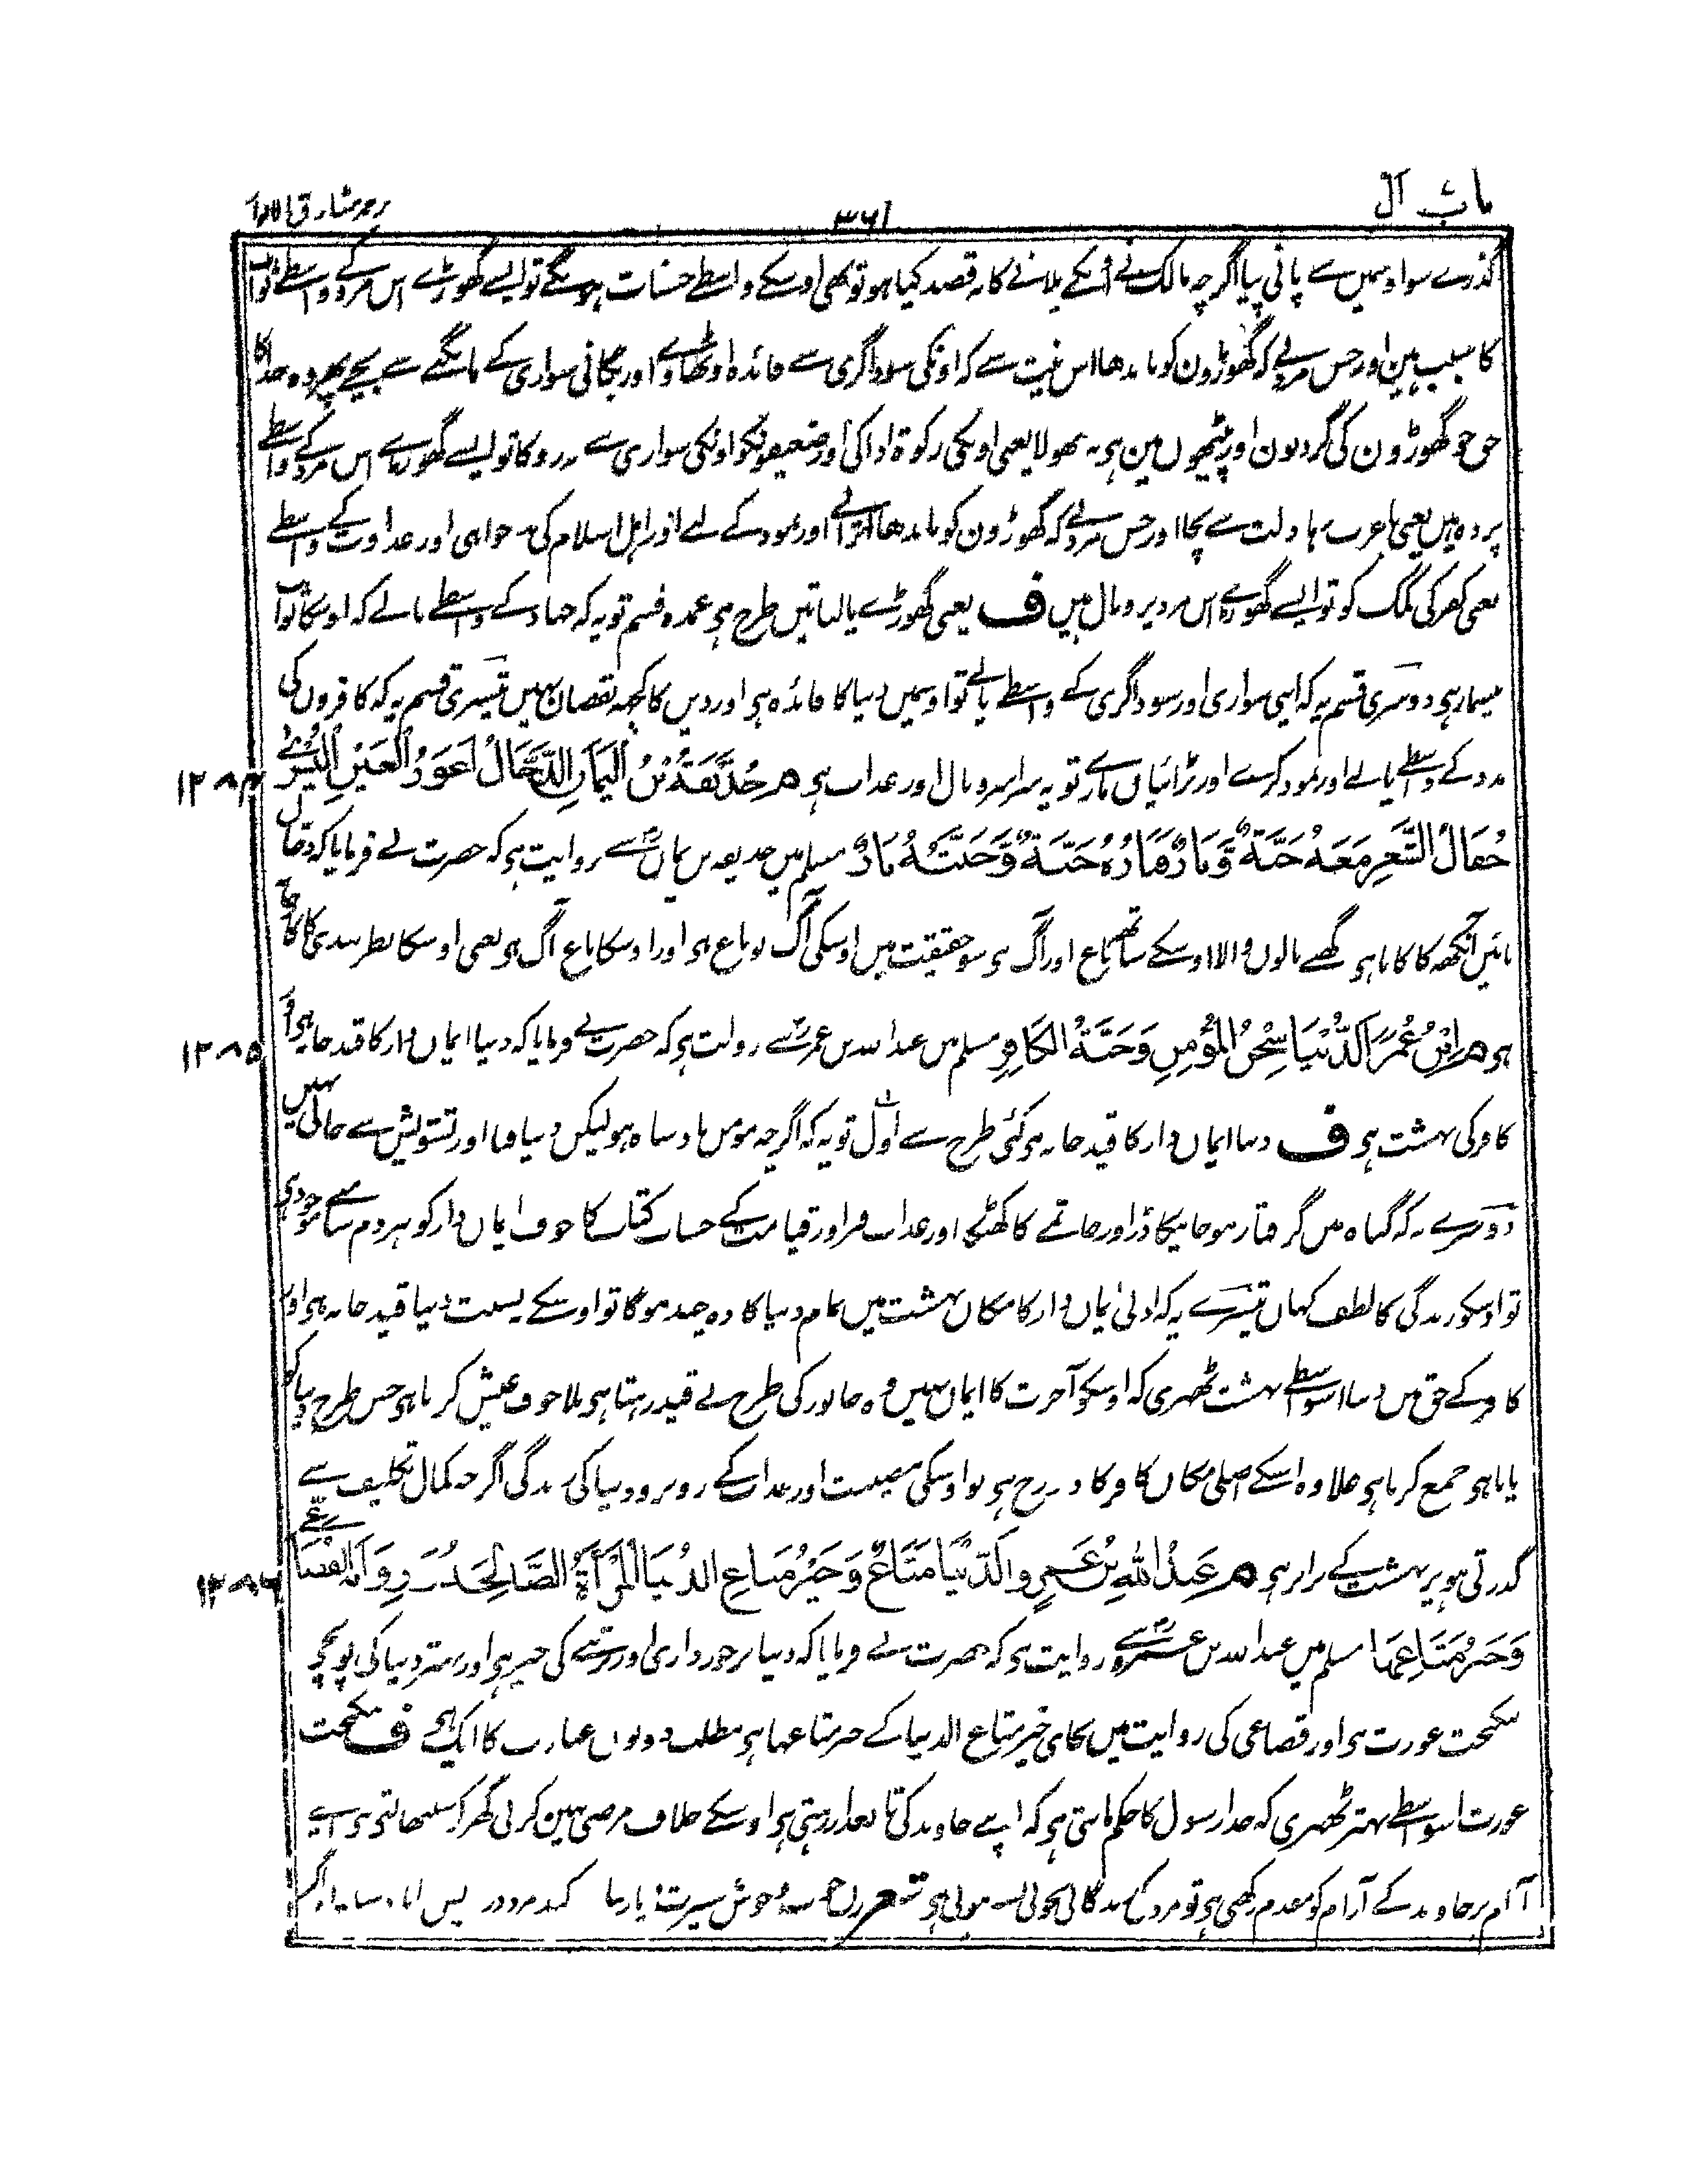 باب ال
۳۶۱
گذرے سو اوسمیں سے پانی پیا اگرچہ مالک نے اُسکے پلانے کا نہ قصد کیا ہو تو بھی اوسکے واسطے حسنات ہونگے تو ایسے گھوڑے اس مرد کے واسطے ثواب
کا سبب ہین اور جس مرد نے کہ گھوڑون کو باندھا اس نیت سے کہ اونکی سوداگری سے فائدہ اوٹھاوے اور بگانی سواری کے مانگنے سے بچے پھر وہ خدا کا
حق جو گھوڑون کی گردنون اور پیٹھوں مین ہی نہ بھولا یعنی اونکی زکوة ادا کی اور ضعیفونکو اونکی سواری سے نہ روکا تو ایسے گھوڑے اس مرد کے واسطے
پردہ ہیں یعنی باعزت رہا ذلت سے بچا اور جس مرد نے کہ گھوڑون کو باندھا اترانے اور نمود کے لے اور اہل اسلام کی بدخواہی اور عداوت کے واسطے
یعنی کفر کی کمک کو تو ایسے گھوڑے اس مرد پر وبال ہیں ف یعنی گھوڑے پالنا تین طرح ہی عمدہ قسم تو یہ کہ جہاد کے واسطے پالے کہ اوسکا ثواب
بیشمار ہی دوسری قسم یہ کہ اپنی سواری اور سوداگری کے واسطے پالے تو اوسمیں دنیا کا فائدہ ہی اور دین کا کچھ نقصان نہیں تیسری قسم یہ کہ کافروں کی
مدد کے واسطے پالے اور نمود کرے اور بڑائیاں مارے تو یہ سراسر وبال اور عذاب ہی م حُذَيْفَةُ بْنُ الْيَمَانِ الدَّجَّالُ أَعْوَرُ الْعَيْنِ الْيُسْرٰى
۱۲۸۴
جُفَالُ الشَّعْرِ مَعَهُ جَنَّةٌ وَّنَارٌ فَنَارُهُ جَنَّةٌ وَّجَنَّتُهُ نَارٌ مسلم میں حذیفہ بن یمان سے روایت ہی کہ حضرت نے فرمایا کہ دجال
بائیں آنکھ کا کانا ہی گھنے بالوں والا اوسکے ساتھ باغ اور آگ ہی سو حقیقت میں اوسکی آگ تو باغ ہی اور اوسکا باغ آگ ہی یعنی اوسکا نظر بندی کا کارخانہ
ہی م اِبْنُ عُمَرَ الدُّنْيَا سِجْنُ الْمُؤْمِنِ وَجَنَّةُ الْكَافِرِ مسلم میں عبد اللہ بن عمر سے روایت ہی کہ حضرت نے فرمایا کہ دنیا ایمان دار کا قید خانہ ہی اور
۱۲۸۵
کافر کی بہشت ہی ف دنیا ایمان دار کا قید خانہ ہی کئی طرح سے اول تو یہ کہ اگرچہ مومن بادشاہ ہو لیکن دنیا فنا اور تشویش سے خالی نہیں
دوسرے یہ کہ گناہ میں گرفتار ہو جانیکا ڈر اور خاتمے کا کھٹکا اور عذاب قبر اور قیامت کے حساب کتاب کا خوف ایمان دار کو ہر دم سامنے موجود ہی
تو اوسکو زندگی کا لطف کہاں تیسرے یہ کہ ادنیٰ ایمان دار کا مکان بہشت میں تمام دنیا کا دہ چند ہوگا تو اوسکے بنسبت دنیا قید خانہ ہی اور
کافر کے حق میں دنیا اسواسطے بہشت ٹھہری کہ اوسکو آخرت کا ایمان نہیں وہ جانور کی طرح بے قید رہتا ہی بلا خوف عیش کرتا ہی جس طرح دنیا کو
پاتا ہی جمع کرتا ہی علاوہ اسکے اصلی مکان کافر کا دوزخ ہی تو اوسکی مصیبت اور عذاب کے روبرو دنیا کی زندگی اگرچہ کمال تکلیف سے
گذرتی ہو پر بہشت کے برابر ہی م عَبْدُ اللّٰهِ بْنُ عَمْرٍو الدُّنْيَا مَتَاعٌ وَخَيْرُ مَتَاعِ الدُّنْيَا الْمَرْأَةُ الصَّالِحَةُ
۱۲۸۶
وَخَيْرُ مَتَاعِهَا مسلم میں عبد اللہ بن عمرو سے روایت ہی کہ حضرت نے فرمایا کہ دنیا برخورداری اور برتنے کی چیز ہی اور بہتر دنیا کی پونجی
نیکبخت عورت ہی اور قضاعی کی روایت میں بجای خیر متاع الدنیا کے خیر متاعہا ہی مطلب دونوں عبارت کا ایک ہی ف نیکبخت
عورت اسواسطے بہتر ٹھہری کہ خدا رسول کا حکم مانتی ہی کہ اپنے خاوند کی تابعدار رہتی ہی اوسکے خلاف مرضی نہین کرتی گھر کو سنبھالتی ہی اپنے
آرام پر خاوند کے آرام کو مقدم رکھتی ہی تو مرد کی زندگانی بخوبی بسر ہوتی ہی شعر زن خوش سیرت پارسا کند مرد درویش را پادشاہ